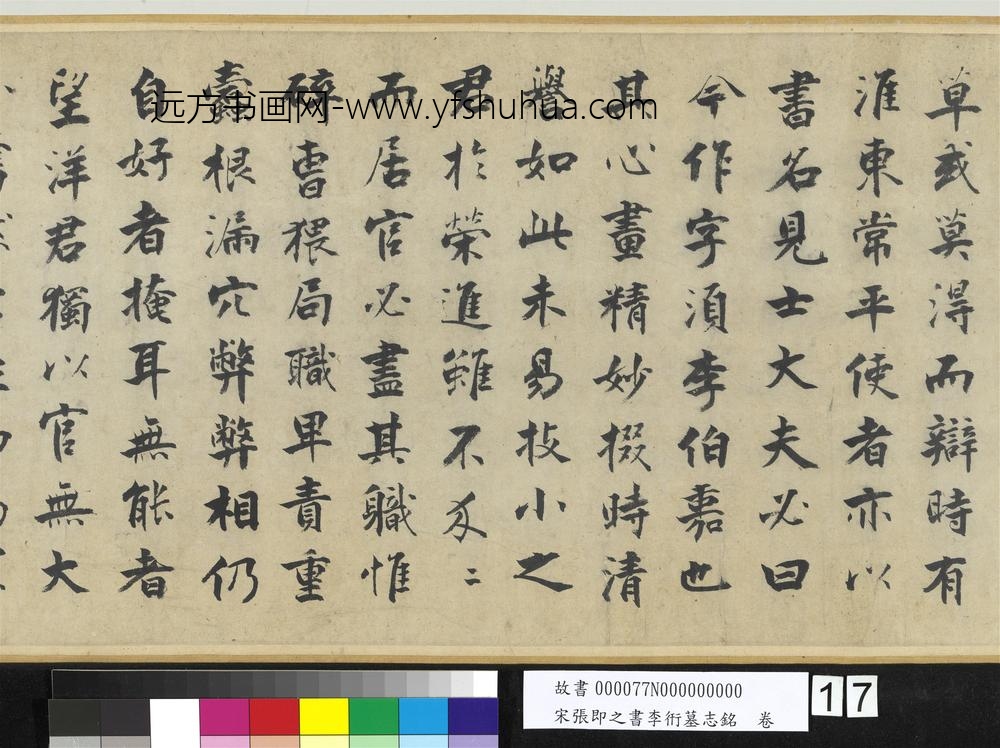 草或莫得而辯時有
淮東常平使者亦以
書名見士大夫必曰
今作字須李伯嘉也
其心畫精妙掇時清
譽如此未易技小之
君於榮進雖不
而居官必盡其職惟
曹猥局職卑責重
蠹根漏穴弊弊相仍
自好者掩耳無能者
望洋君獨以官無大
远方书画网-www.yfshuhua.com
故書 000077N000000000
宋張即之書李衎墓志銘 卷
17